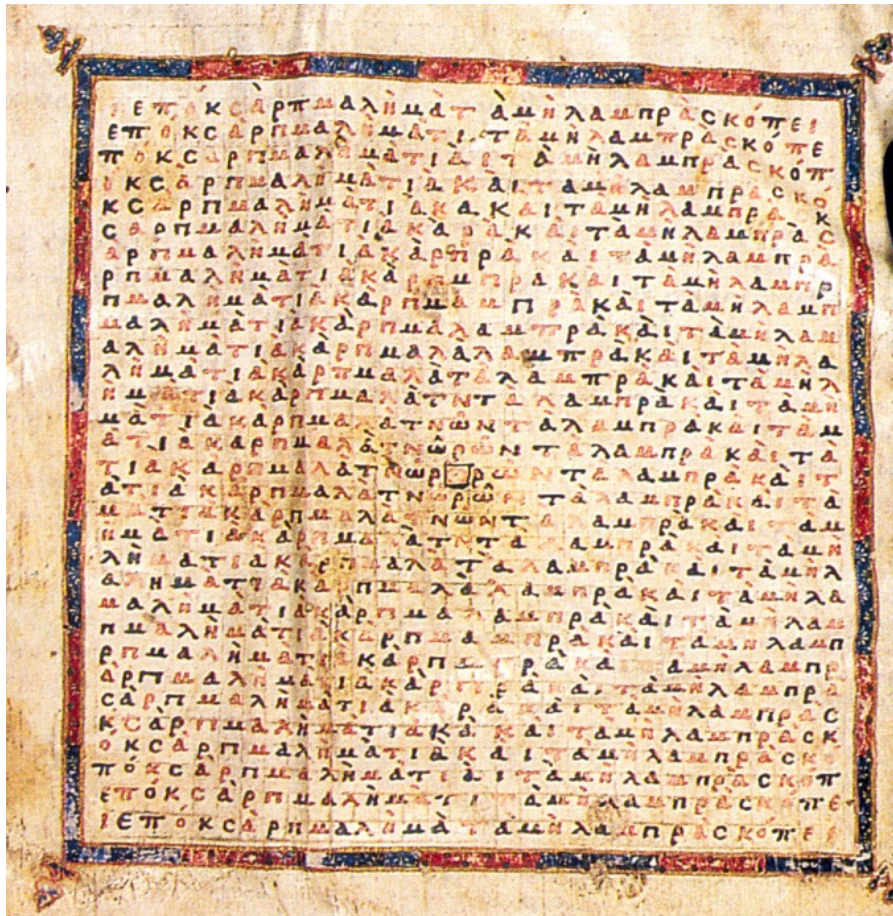 ιεποκσαρπμαληματαμηλαμπρασκοπει
εποκσαρπμαληματιταμηλαμπρασκοπε
ποκσαρπμαληματιαιταμηλαμπρασκοπ
οκσαρπμαληματιακαιταμηλαμπρασκο
κσαρπμαληματιακακαιταμηλαμπρασκ
σαρπμαληματιακαρακαιταμηλαμπρασ
αρπμαληματιακαρπρακαιταμηλαμπρα
ρπμαληματιακαρπμπρακαιταμηλαμπρ
πμαληματιακαρπμαμπρακαιταμηλαμπ
μαληματιακαρπμαλαμπρακαιταμηλαμ
αληματιακαρπμαλαλαμπρακαιταμηλα
ληματιακαρπμαλαταλαμπρακαιταμηλ
ηματιακαρπμαλατνταλαμπρακαιταμη
ματιακαρπμαλατνωνταλαμπρακαιταμ
ατιακαρπμαλατνωρωνταλαμπρακαιτα
τιακαρπμαλατνωρορωνταλαμπρακαιτ
ατιακαρπμαλατνωρωνταλαμπρακαιτα
ματιακαρπμαλατνωνταλαμπρακαιταμ
ηματιακαρπμαλατνταλαμπρακαιταμη
ληματιακαρπμαλαταλαμπρακαιταμηλ
αληματιακαρπμαλαλαμπρακαιταμηλα
μαληματιακαρπμαλαμπρακαιταμηλαμ
πμαληματιακαρπμαμπρακαιταμηλαμπ
ρπμαληματιακαρπμπρακαιταμηλαμπρ
αρπμαληματιακαρπρακαιταμηλαμπρα
σαρπμαληματιακαρακαιταμηλαμπρασ
κσαρπμαληματιακακαιταμηλαμπρασκ
οκσαρπμαληματιακαιταμηλαμπρασκο
ποκσαρπμαληματιαιταμηλαμπρασκοπ
εποκσαρπμαληματιταμηλαμπρασκοπε
ιεποκσαρπμαληματαμηλαμπρασκοπει